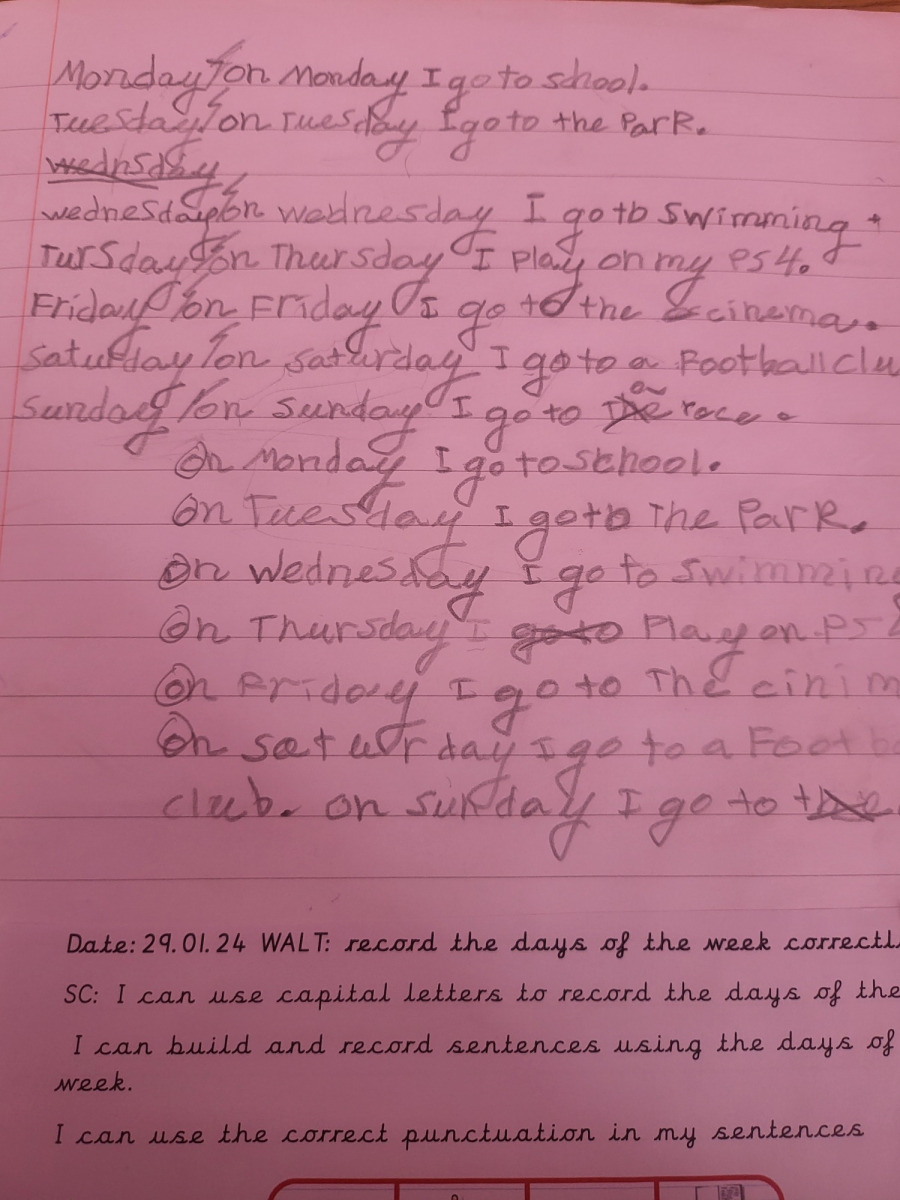 Monday/on Monday I go to school.
Tuesday/on Tuesday I go to the Park.
wednsday
wednesday/on wednesday I go to swimming.
Tursday/on Thursday I play on my PS4.
Friday/on Friday I go to the cinema.
saturday/on saturday I go to a Football clu
sunday/on sunday I go to the a race.
On Monday I go to school.
On Tuesday I go to The Park.
On wednesday I go to swimming
On Thursday I go to Play on PS4
On Friday I go to The cinim
On saturday I go to a Footb
club. on sunday I go to the
Date: 29.01.24 WALT: record the days of the week correctl
SC: I can use capital letters to record the days of the
I can build and record sentences using the days of
week.
I can use the correct punctuation in my sentences